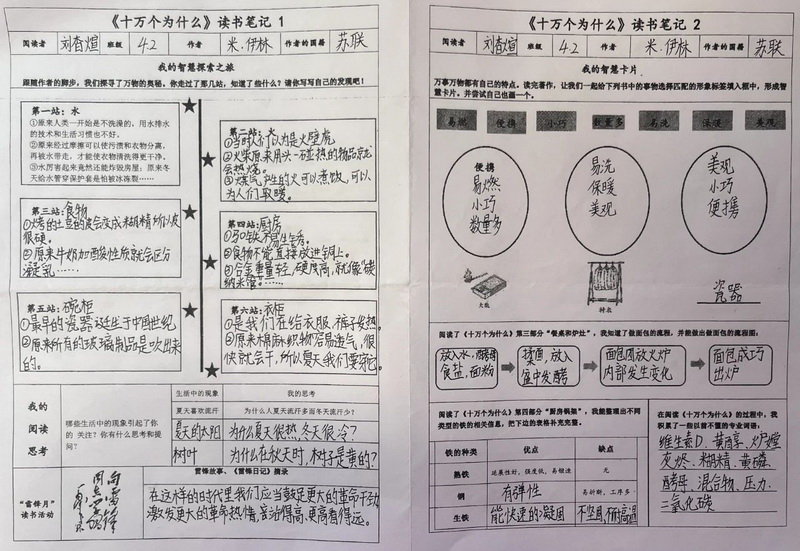 《十万个为什么》读书笔记 1
阅读者 刘杳煊 班级 4.2 作者 米.伊林 作者的国籍 苏联
我的智慧探索之旅
跟随作者的脚步，我们探寻了万物的奥秘。你走过了那几站，知道了些什么？请你写写自己的发现吧！
第一站：水
①原来人类一开始是不洗澡的，用水排水
的技术和生活习惯也不好。
②原来经过摩擦可以使污渍和衣物分离，
再被水带走，才能使衣物清洗得更干净。
③水厉害起来竟然还能炸毁房屋；原来冬
天给水管穿保护套是怕被冰冻裂……
第二站：火
①当时人们以为是火壁虎
②火柴原来用头一碰热的物品就
会热烧。
③煤气产生的火可以煮饭，可以
为人们取暖。
第三站：食物
①烤的土豆的皮会变成米胡精所以皮
很硬。
②原来牛奶加酸性质就会区分
凝乳……
第四站：厨房
①
②食物不能直接放进铜上。
③合金重量轻，硬度高，就像“碳
纳米管”……
第五站：碗柜
①最早的瓷器诞生于中国世纪
②原来所有的玻璃制品是吹出来
的。
第六站：衣柜
①是我们在给衣服，裤子发热。
②原来棉麻织物容易透气，很
快就会干，所以夏天我们要穿它
我的
阅读
思考
哪些生活中的现象引起了你
的 关注？你有什么思考和提
问？
生活中的现象 我的思考
夏天喜欢流汗 为什么人夏天流汗多而冬天流汗少？
夏天的太阳 为什么夏天很热，冬天很冷？
树叶 为什么在放天时，树子是黄的？
“雷锋月”
读书活动
向雷锋
同志学习
雷锋故事、《雷锋日记》摘录
在这样的时代里我们应当鼓足更大的革命干劲
激发更大的革命热情，站得高、更高看得远。
《十万个为什么》读书笔记 2
阅读者 刘杳煊 班级 4.2 作者 米.伊林 作者的国籍 苏联
我的智慧卡片
万事万物都有自己的特点。读完著作，让我们一起给下列书中的事物选择匹配的形象标签填入框中，形成智
慧卡片。并尝试自己也画一个。
易燃 便携 小巧 数量多 易洗 保暖 美观
便携
易燃
小巧
数量多
易洗
保暖
美观
美观
小巧
便携
火柴
棉衣
瓷器
阅读了《十万个为什么》第三部分“餐桌和炉灶”，我知道了做面包的流程，并能做出做面包的流程图：
放入水，酵母
食盐，面粉
揉面，放入
盆中发酵
面包团放火炉
内部发生变化
面包成功
出炉
阅读了《十万个为什么》第四部分“厨房锅架”，我能整理出不同
类型的铁的相关信息，把下边的表格补充完整。
铁的种类 优点 缺点
熟铁 延展性好，强度低，易锻造 无
钢 有弹性 易折断，工序多
生铁 能快速的凝固 不坚固，不耐高温
在阅读《十万个为什么》的过程中，我
积累了一些以前不懂的专业词语：
维生素D、黄醇、炉膛
灰烬、米胡精、黄磷、
酵母、混合物、压力、
二氧化碳